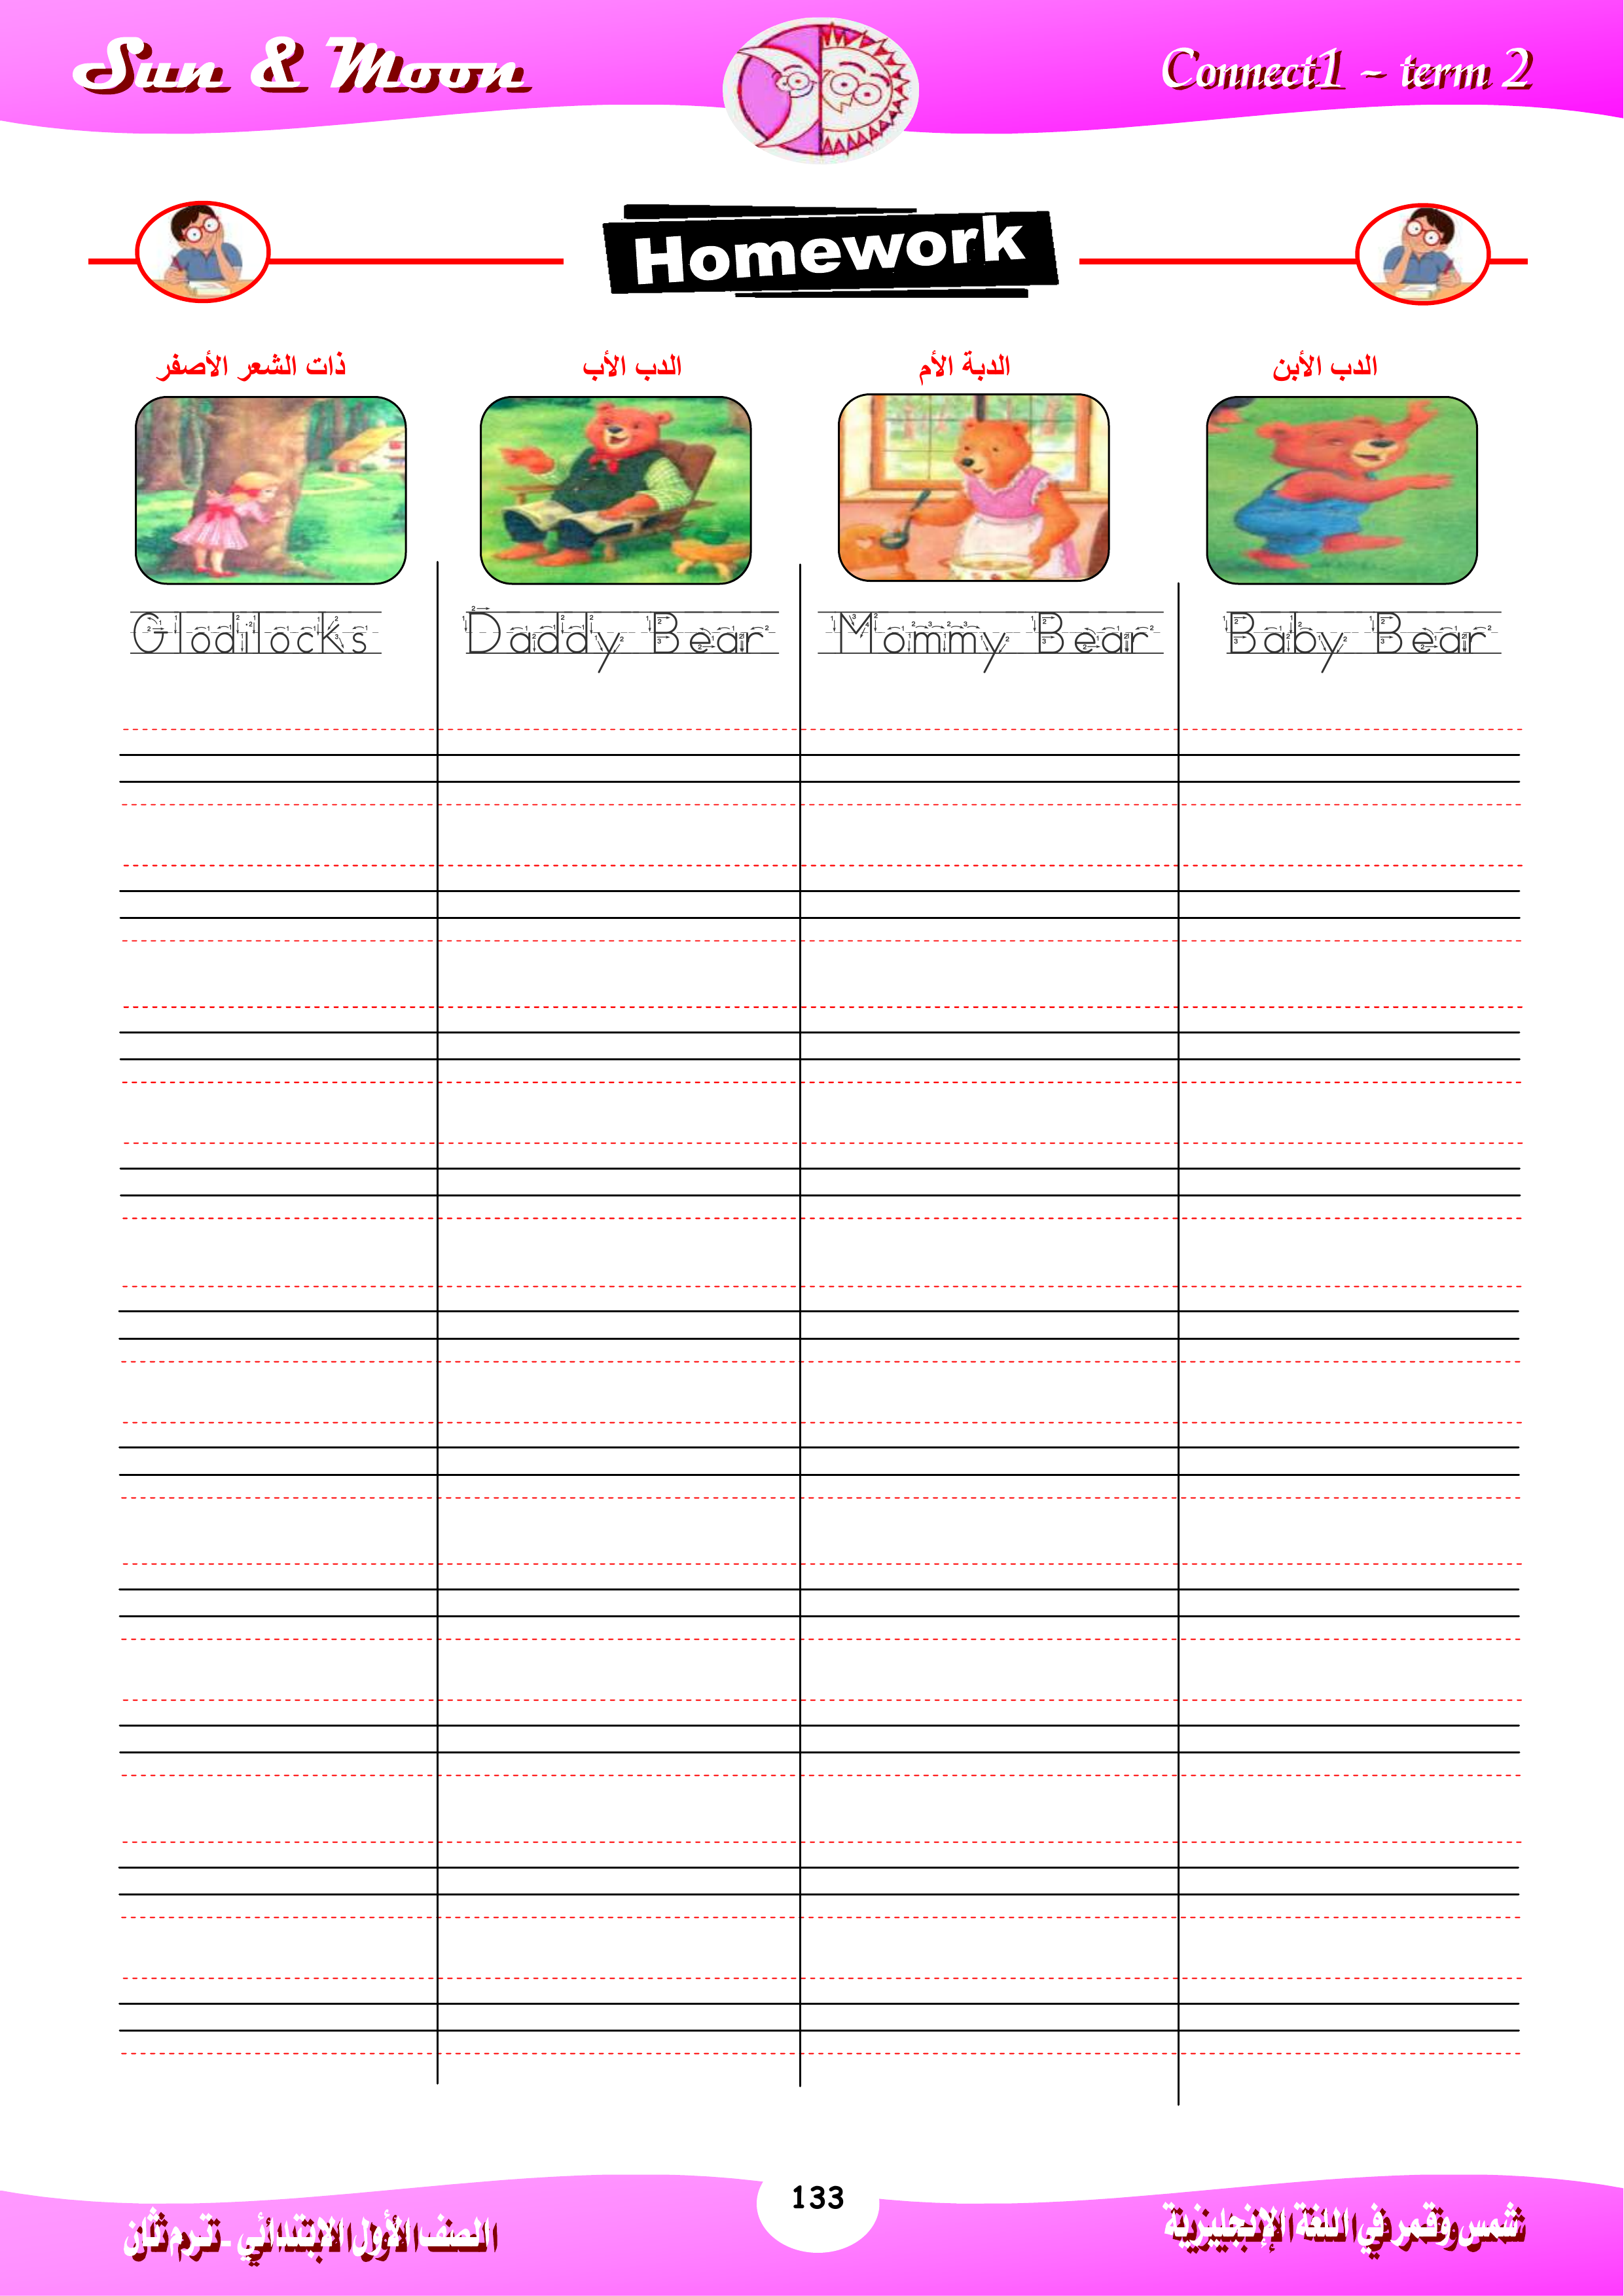 Sun & Moon
Connect1 – term 2
Homework
ذات الشعر الأصفر
الدب الأب
الدبة الأم
الدب الأبن
Glodilocks
Daddy Bear
Mommy Bear
Baby Bear
133
الصف الأول الابتدائي - ترم ثان
شمس وقمر في اللغة الإنجليزية